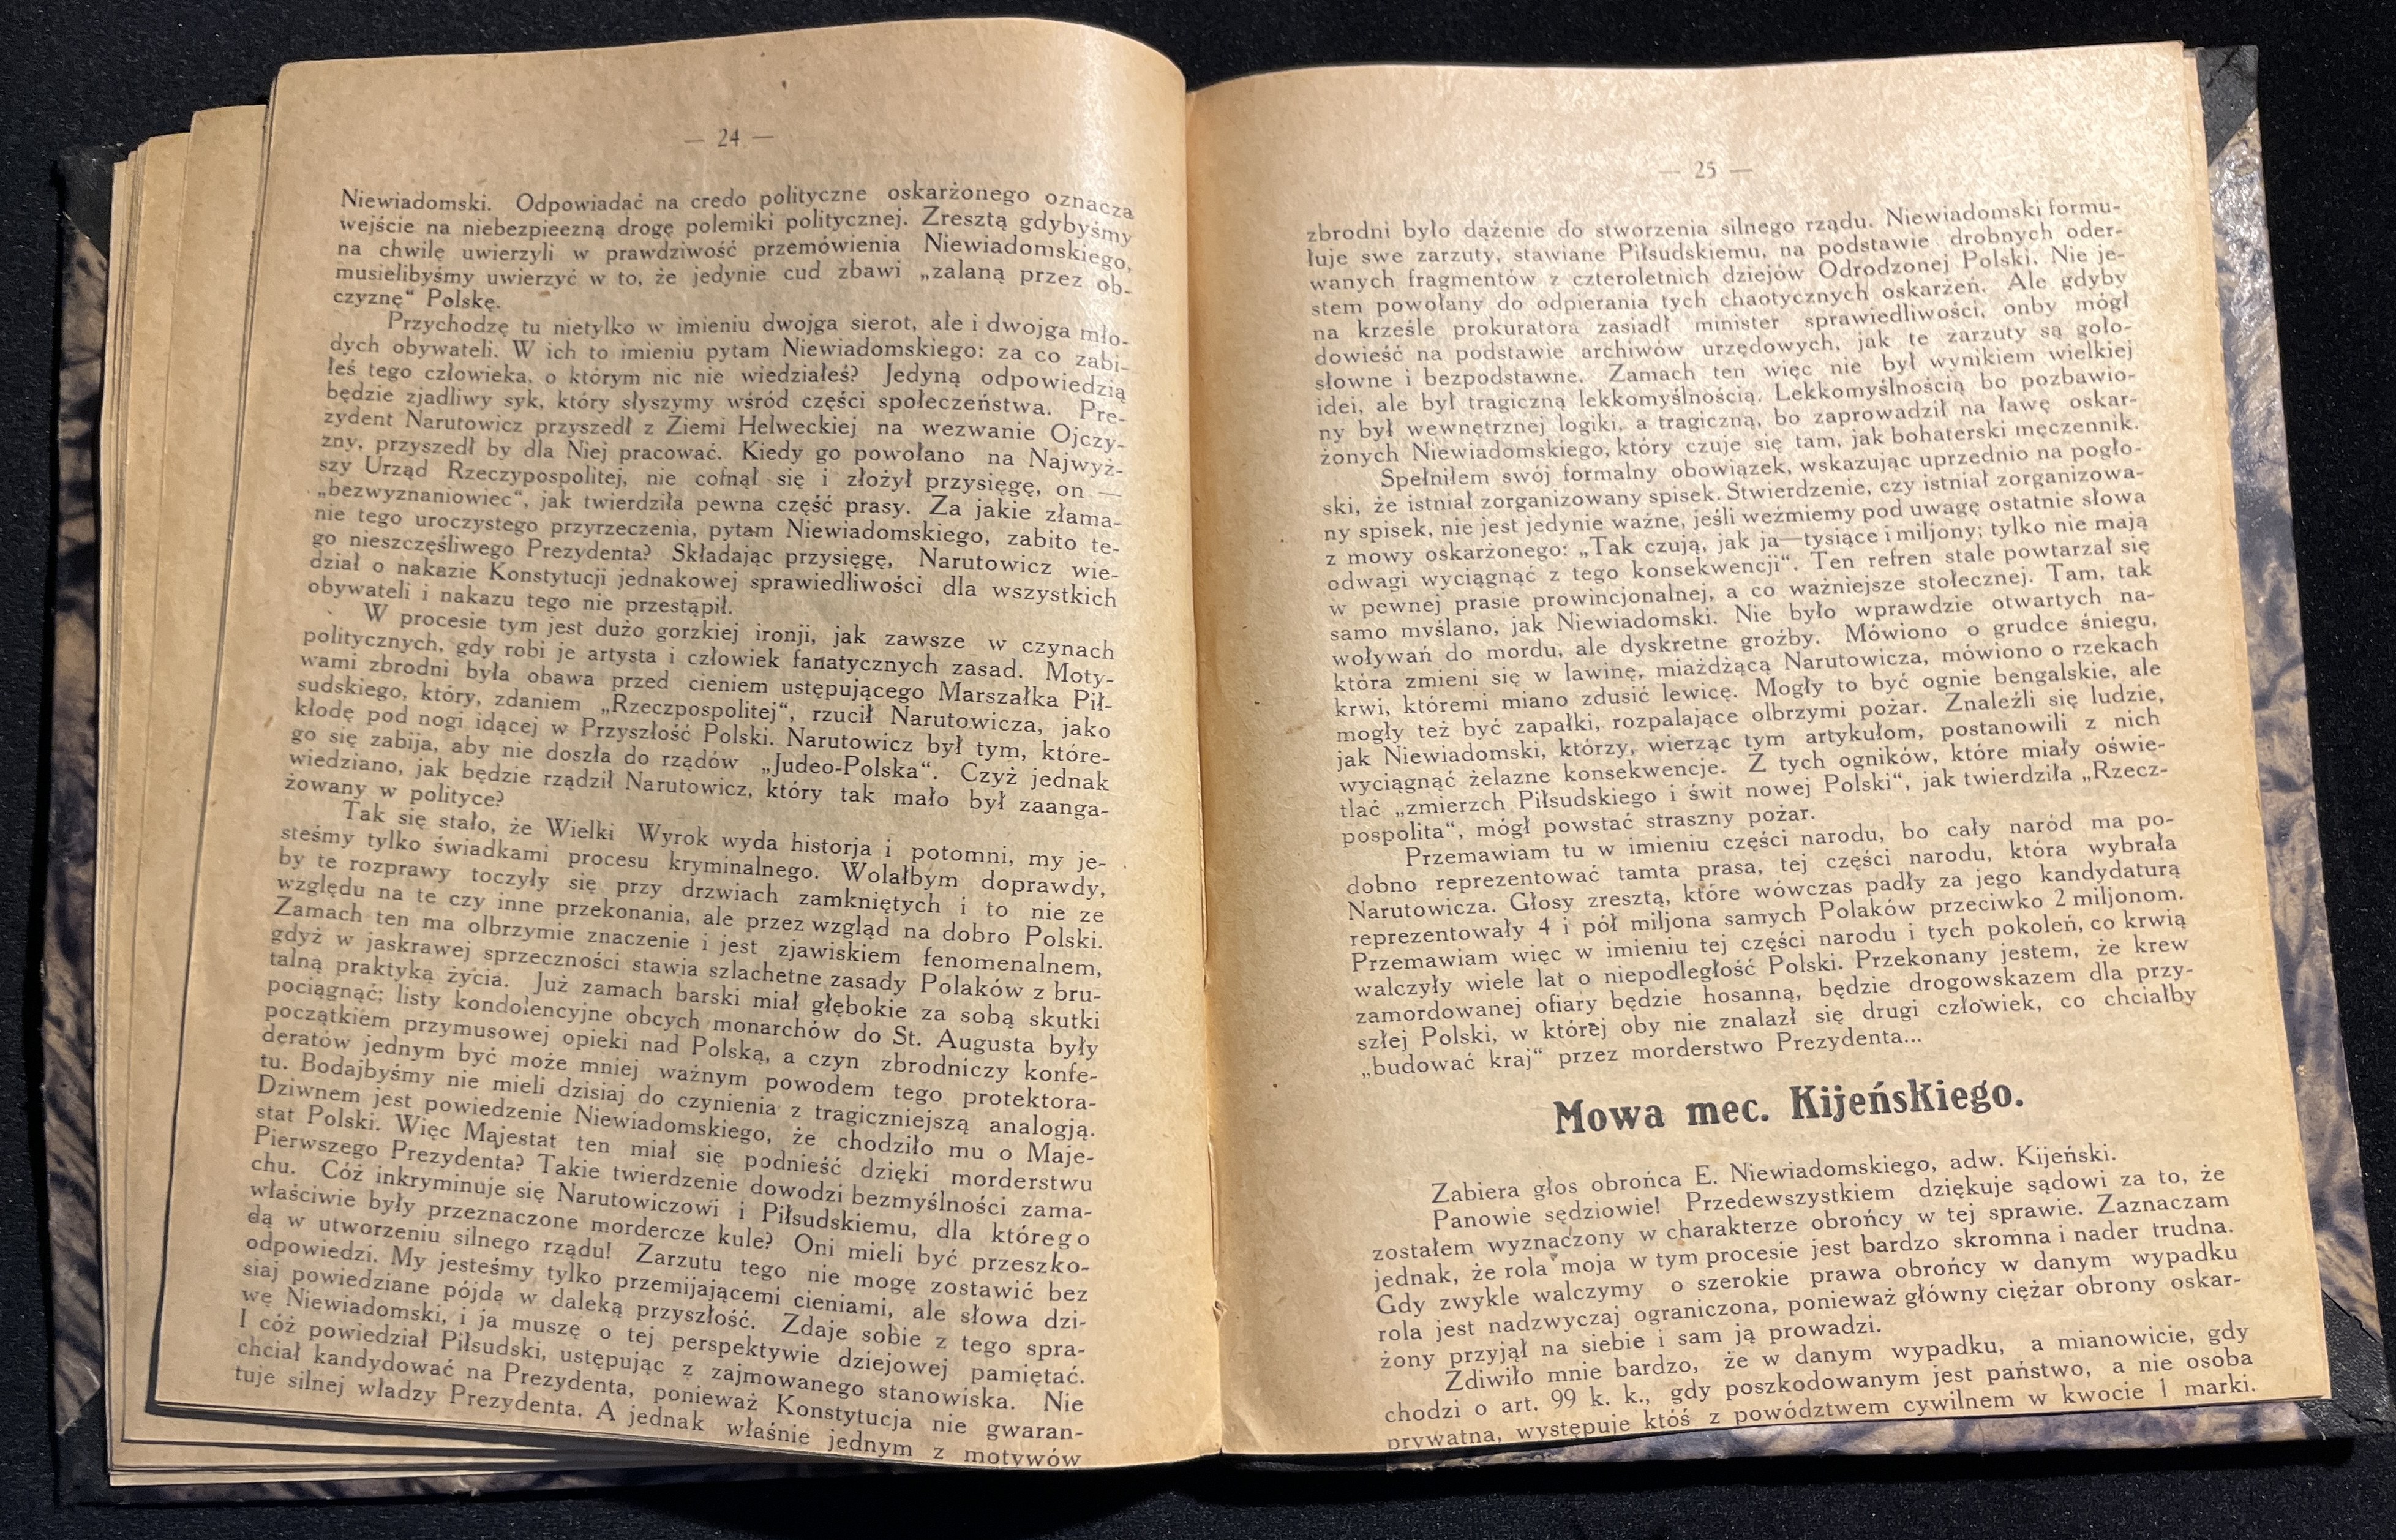 — 24 —
Niewiadomski. Odpowiadać na credo polityczne oskarżonego oznacza
wejście na niebezpieezną drogę polemiki politycznej. Zresztą gdybyśmy
na chwilę uwierzyli w prawdziwość przemówienia Niewiadomskiego,
musielibyśmy uwierzyć w to, że jedynie cud zbawi „zalaną przez ob-
czyznę“ Polskę.
Przychodzę tu nietylko w imieniu dwojga sierot, ale i dwojga mło-
dych obywateli. W ich to imieniu pytam Niewiadomskiego: za co zabi-
łeś tego człowieka, o którym nic nie wiedziałeś? Jedyną odpowiedzią
będzie zjadliwy syk, który słyszymy wśród części społeczeństwa. Pre-
zydent Narutowicz przyszedł z Ziemi Helweckiej na wezwanie Ojczy-
zny, przyszedł by dla Niej pracować. Kiedy go powołano na Najwyż-
szy Urząd Rzeczypospolitej, nie cofnął się i złożył przysięgę, on —
„bezwyznaniowiec“, jak twierdziła pewna część prasy. Za jakie złama-
nie tego uroczystego przyrzeczenia, pytam Niewiadomskiego, zabito te-
go nieszczęśliwego Prezydenta? Składając przysięgę, Narutowicz wie-
dział o nakazie Konstytucji jednakowej sprawiedliwości dla wszystkich
obywateli i nakazu tego nie przestąpił.
W procesie tym jest dużo gorzkiej ironji, jak zawsze w czynach
politycznych, gdy robi je artysta i człowiek fanatycznych zasad. Moty-
wami zbrodni była obawa przed cieniem ustępującego Marszałka Pił-
sudskiego, który, zdaniem „Rzeczpospolitej“, rzucił Narutowicza, jako
kłodę pod nogi idącej w Przyszłość Polski. Narutowicz był tym, które-
go się zabija, aby nie doszła do rządów „Judeo-Polska“. Czyż jednak
wiedziano, jak będzie rządził Narutowicz, który tak mało był zaanga-
żowany w polityce?
Tak się stało, że Wielki Wyrok wyda historja i potomni, my je-
steśmy tylko świadkami procesu kryminalnego. Wolałbym doprawdy,
by te rozprawy toczyły się przy drzwiach zamkniętych i to nie ze
względu na te czy inne przekonania, ale przez wzgląd na dobro Polski.
Zamach ten ma olbrzymie znaczenie i jest zjawiskiem fenomenalnem,
gdyż w jaskrawej sprzeczności stawia szlachetne zasady Polaków z bru-
talną praktyką życia. Już zamach barski miał głębokie za sobą skutki
pociągnąć; listy kondolencyjne obcych monarchów do St. Augusta były
początkiem przymusowej opieki nad Polską, a czyn zbrodniczy konfe-
deratów jednym być może mniej ważnym powodem tego protektora-
tu. Bodajbyśmy nie mieli dzisiaj do czynienia z tragiczniejszą analogją.
Dziwnem jest powiedzenie Niewiadomskiego, że chodziło mu o Maje-
stat Polski. Więc Majestat ten miał się podnieść dzięki morderstwu
Pierwszego Prezydenta? Takie twierdzenie dowodzi bezmyślności zama-
chu. Cóż inkryminuje się Narutowiczowi i Piłsudskiemu, dla którego
właściwie były przeznaczone mordercze kule? Oni mieli być przeszko-
dą w utworzeniu silnego rządu! Zarzutu tego nie mogę zostawić bez
odpowiedzi. My jesteśmy tylko przemijającemi cieniami, ale słowa dzi-
siaj powiedziane pójdą w daleką przyszłość. Zdaje sobie z tego spra-
wę Niewiadomski, i ja muszę o tej perspektywie dziejowej pamiętać.
I cóż powiedział Piłsudski, ustępując z zajmowanego stanowiska. Nie
chciał kandydować na Prezydenta, ponieważ Konstytucja nie gwaran-
tuje silnej władzy Prezydenta. A jednak właśnie jednym z motywów
— 25 —
zbrodni było dążenie do stworzenia silnego rządu. Niewiadomski formu-
łuje swe zarzuty, stawiane Piłsudskiemu, na podstawie drobnych oder-
wanych fragmentów z czteroletnich dziejów Odrodzonej Polski. Nie je-
stem powołany do odpierania tych chaotycznych oskarżeń. Ale gdyby
na krześle prokuratora zasiadł minister sprawiedliwości, onby mógł
dowieść na podstawie archiwów urzędowych, jak te zarzuty są goło-
słowne i bezpodstawne. Zamach ten więc nie był wynikiem wielkiej
idei, ale był tragiczną lekkomyślnością. Lekkomyślnością bo pozbawio-
ny był wewnętrznej logiki, a tragiczną, bo zaprowadził na ławę oskar-
żonych Niewiadomskiego, który czuje się tam, jak bohaterski męczennik.
Spełniłem swój formalny obowiązek, wskazując uprzednio na pogło-
ski, że istniał zorganizowany spisek. Stwierdzenie, czy istniał zorganizowa-
ny spisek, nie jest jedynie ważne, jeśli weźmiemy pod uwagę ostatnie słowa
z mowy oskarżonego: „Tak czują, jak ja—tysiące i miljony; tylko nie mają
odwagi wyciągnąć z tego konsekwencji“. Ten refren stale powtarzał się
w pewnej prasie prowincjonalnej, a co ważniejsze stołecznej. Tam, tak
samo myślano, jak Niewiadomski. Nie było wprawdzie otwartych na-
woływań do mordu, ale dyskretne groźby. Mówiono o grudce śniegu,
która zmieni się w lawinę, miażdżącą Narutowicza, mówiono o rzekach
krwi, któremi miano zdusić lewicę. Mogły to być ognie bengalskie, ale
mogły też być zapałki, rozpalające olbrzymi pożar. Znaleźli się ludzie,
jak Niewiadomski, którzy, wierząc tym artykułom, postanowili z nich
wyciągnąć żelazne konsekwencje. Z tych ogników, które miały oświe-
tlać „zmierzch Piłsudskiego i świt nowej Polski“, jak twierdziła „Rzecz-
pospolita“, mógł powstać straszny pożar.
Przemawiam tu w imieniu części narodu, bo cały naród ma po-
dobno reprezentować tamta prasa, tej części narodu, która wybrała
Narutowicza. Głosy zresztą, które wówczas padły za jego kandydaturą
reprezentowały 4 i pół miljona samych Polaków przeciwko 2 miljonom.
Przemawiam więc w imieniu tej części narodu i tych pokoleń, co krwią
walczyły wiele lat o niepodległość Polski. Przekonany jestem, że krew
zamordowanej ofiary będzie hosanną, będzie drogowskazem dla przy-
szłej Polski, w której oby nie znalazł się drugi człowiek, co chciałby
„budować kraj“ przez morderstwo Prezydenta...
Mowa mec. Kijeńskiego.
Zabiera głos obrońca E. Niewiadomskiego, adw. Kijeński.
Panowie sędziowie! Przedewszystkiem dziękuje sądowi za to, że
zostałem wyznaczony w charakterze obrońcy w tej sprawie. Zaznaczam
jednak, że rola moja w tym procesie jest bardzo skromna i nader trudna.
Gdy zwykle walczymy o szerokie prawa obrońcy w danym wypadku
rola jest nadzwyczaj ograniczona, ponieważ główny ciężar obrony oskar-
żony przyjął na siebie i sam ją prowadzi.
Zdiwiło mnie bardzo, że w danym wypadku, a mianowicie, gdy
chodzi o art. 99 k. k., gdy poszkodowanym jest państwo, a nie osoba
prywatna, występuje któś z powództwem cywilnem w kwocie 1 marki.